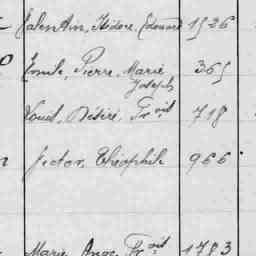 Valentin, Isidore, Edouard 1526
Emile, Pierre, Marie 365
Joseph
Louis, Désiré, Fr.oit 718
Victor, Théophile 966
Marie, Ange, Fr.oit 1783